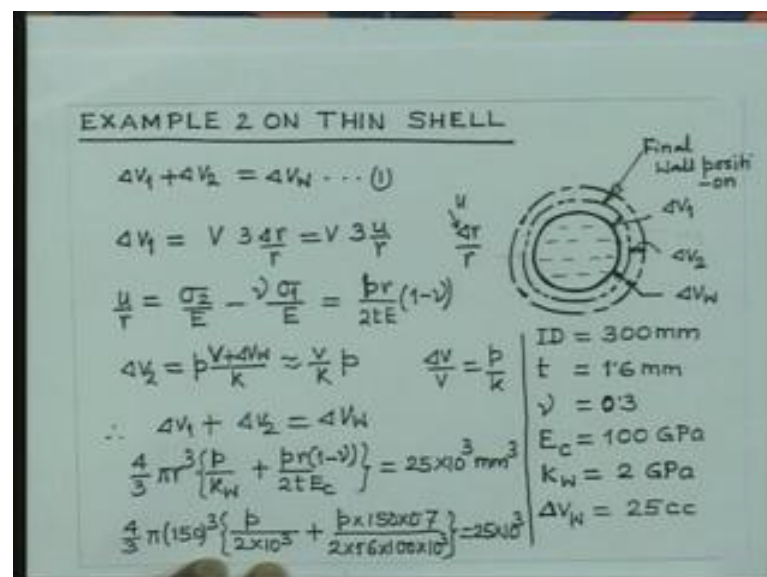 EXAMPLE 2 ON THIN SHELL
ΔV₁ + ΔV₂ = ΔV_W ... ①
ΔV₁ = V 3 Δr/r = V 3 u/r
u
Δr/r
u/r = σ₂/E − νσ₁/E = pr/2tE (1−ν)
ΔV₂ = p (V+ΔV_W)/K ≈ V/K p
ΔV/V = p/K
∴ ΔV₁ + ΔV₂ = ΔV_W
4/3 πr³{p/K_W + pr(1−ν)/2tE_c} = 25×10³ mm³
4/3 π(150)³{p/2×10³ + p×150×0.7/2×1.6×100×10³} = 25×10³
Final
Wall positi
-on
ΔV₁
ΔV₂
ΔV_W
ID = 300mm
t = 1.6 mm
ν = 0.3
E_c = 100 GPa
K_W = 2 GPa
ΔV_W = 25cc